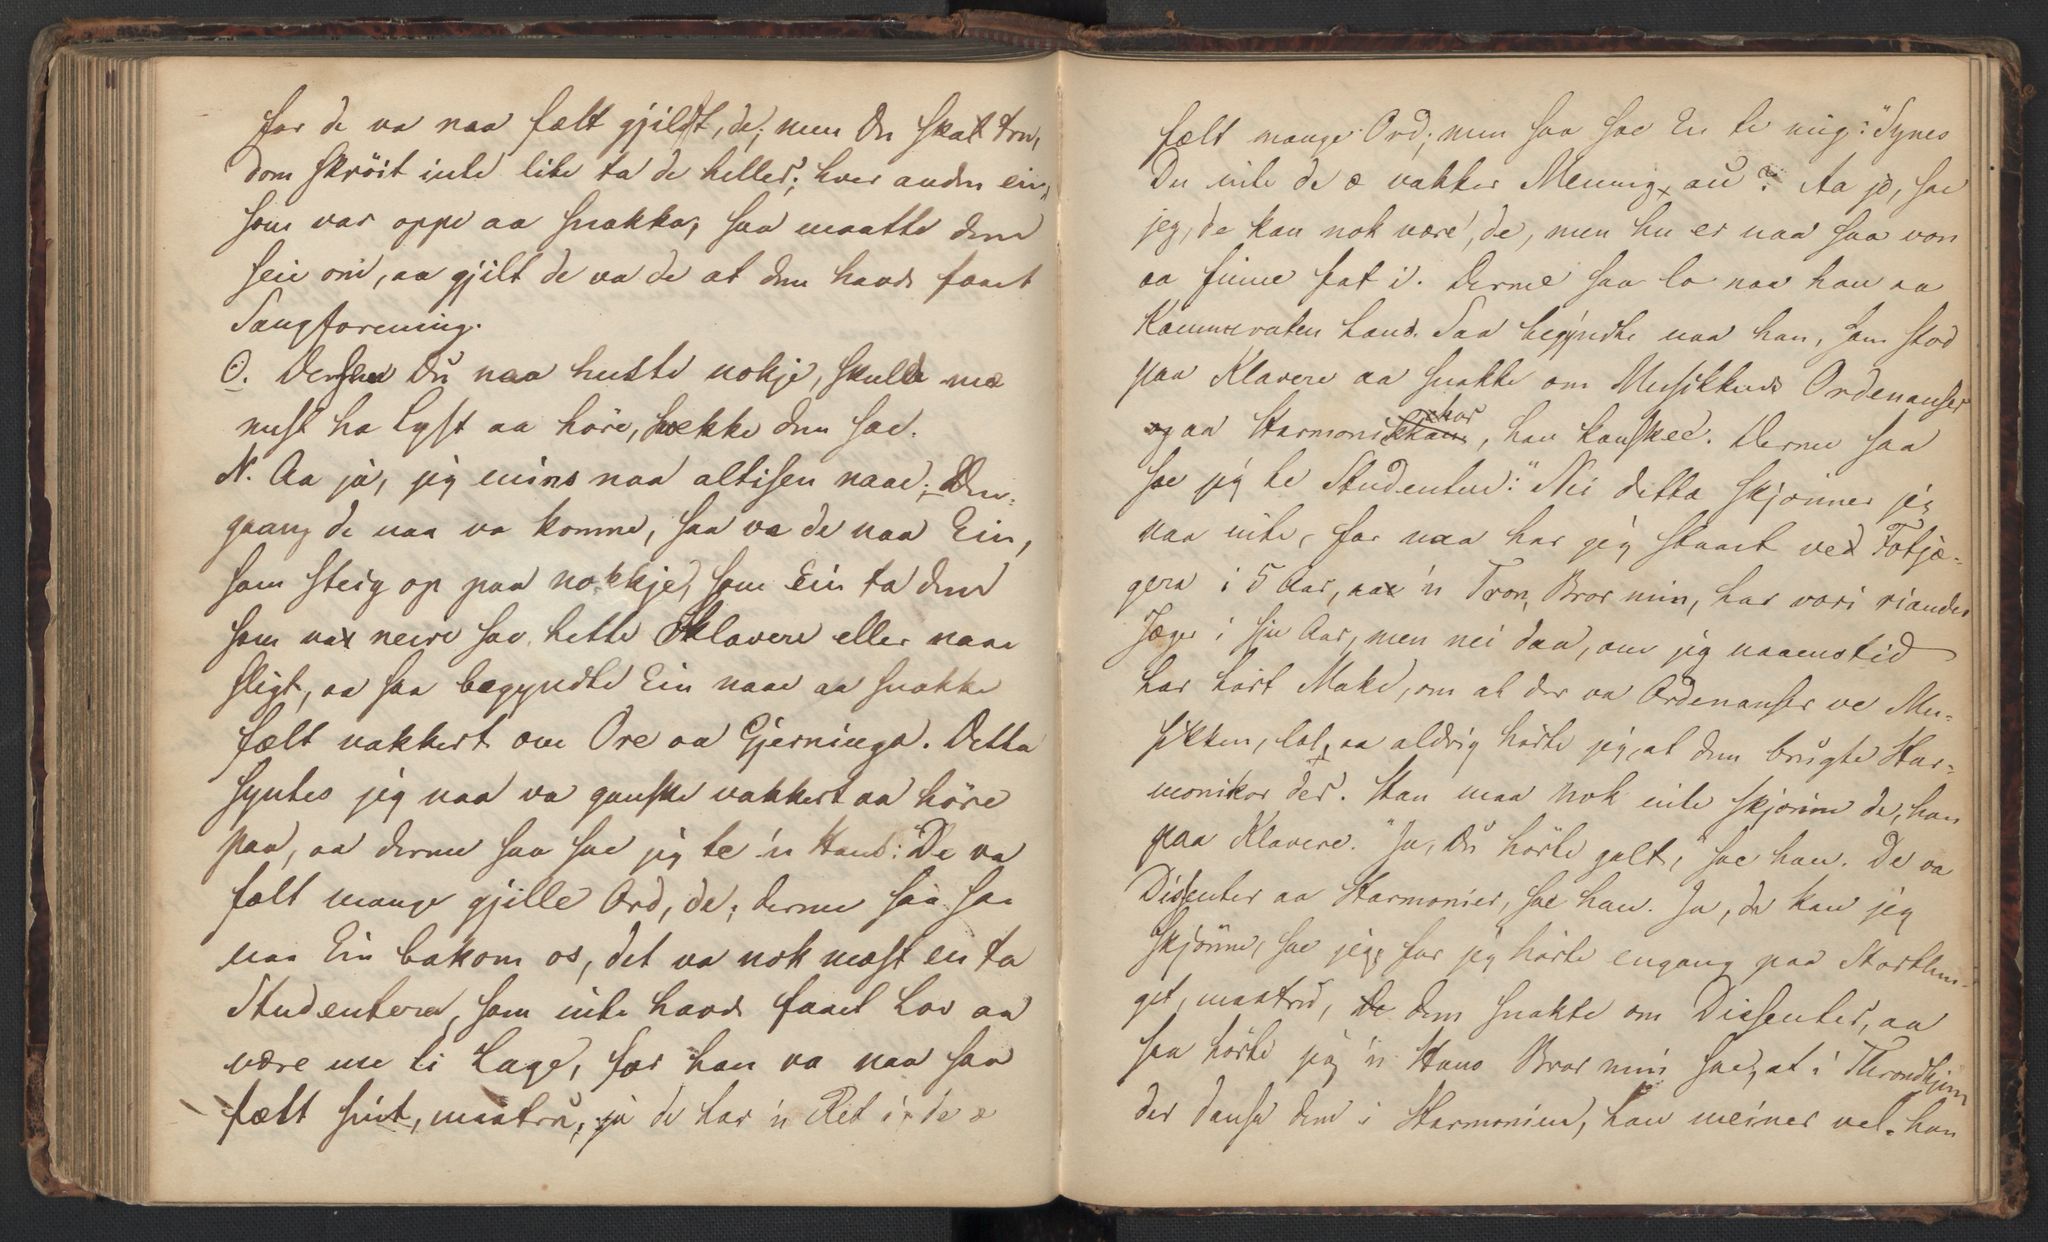 for de va naa fælt gjildt, de; men Du skat tru,
dom skröit inte lite ta de heller; hver anden ein,
som var oppe aa snakka, saa maatte dem
seie om, aa gjilt de va de at dem havde faaet
Sangforening.
O. Dersen Du naa huste nokje, skulde me
nust ha Lyst aa höre, hvække dem sae.
N. Aa ja, jeg mins naa altisen naae; Den-
gaang de naa va komme, saa va de naa Ein,
som steig op paa nokkje, som Ein ta dem
som var neire sae, hette Klavere eller naae
sligt, aa saa begyndte Ein naae aa snakke
fælt vakkert om Ore aa Gjerninga. Detta
syntes jeg naa va ganske vakkert aa höre
paa, aa derme saa sae jeg te 'n Hans: "De va
fælt mange gjille Ord, de; derme saa sa
naa Ein bakom os, det va nok mest en ta
Studentera, som inte havde faaet Lov aa
være me i Laget, for han va naa saa
fælt sint, maatru, ja de har 'n Ret i, de æ
fælt mange Ord; men saa sae En te mig: "Synes
Du inte de æ vakker Mening, au? Aa jo, sae
jeg, de kan nok være, de, men hu er naa saa von
aa finne fat i. Derme saa lo naa han aa
Kammeraten hans. Saa begyndte naa han, som stod
paa Klavere aa snakke om Musikkens Ordenanser
og aa Harmonikkor, han kanskee. Derme saa
sae jeg te Studenten: "Nei detta skjönner jeg
naa inte, for naa har jeg staaet ved Fotjæ-
gera i 5 Aar, aa 'n Tron, Bror min, har vori riandes
Jæger i sju Aar, men nei daa, om jeg naaenstid
har hört Make, om at der va Ordenanser ve Mu-
sikken, lel, aa aldrig hörte jeg, at dem brugte Har-
monikor der. Han maa nok inte skjönne de, han
paa Klavere. "Ja, Du hörte galt," sae han. De va
Dissenter aa Harmonier, sae han. Ja, de kan jeg
skjönne, sae jeg, for jeg hörte engang paa Storthin-
get, maatru, dem snakte om Dissenter, aa
saa hörte jeg 'n Hans Bror min sae, at i Throndhjem
der dansa dem i Harmonien, han meiner vel. han